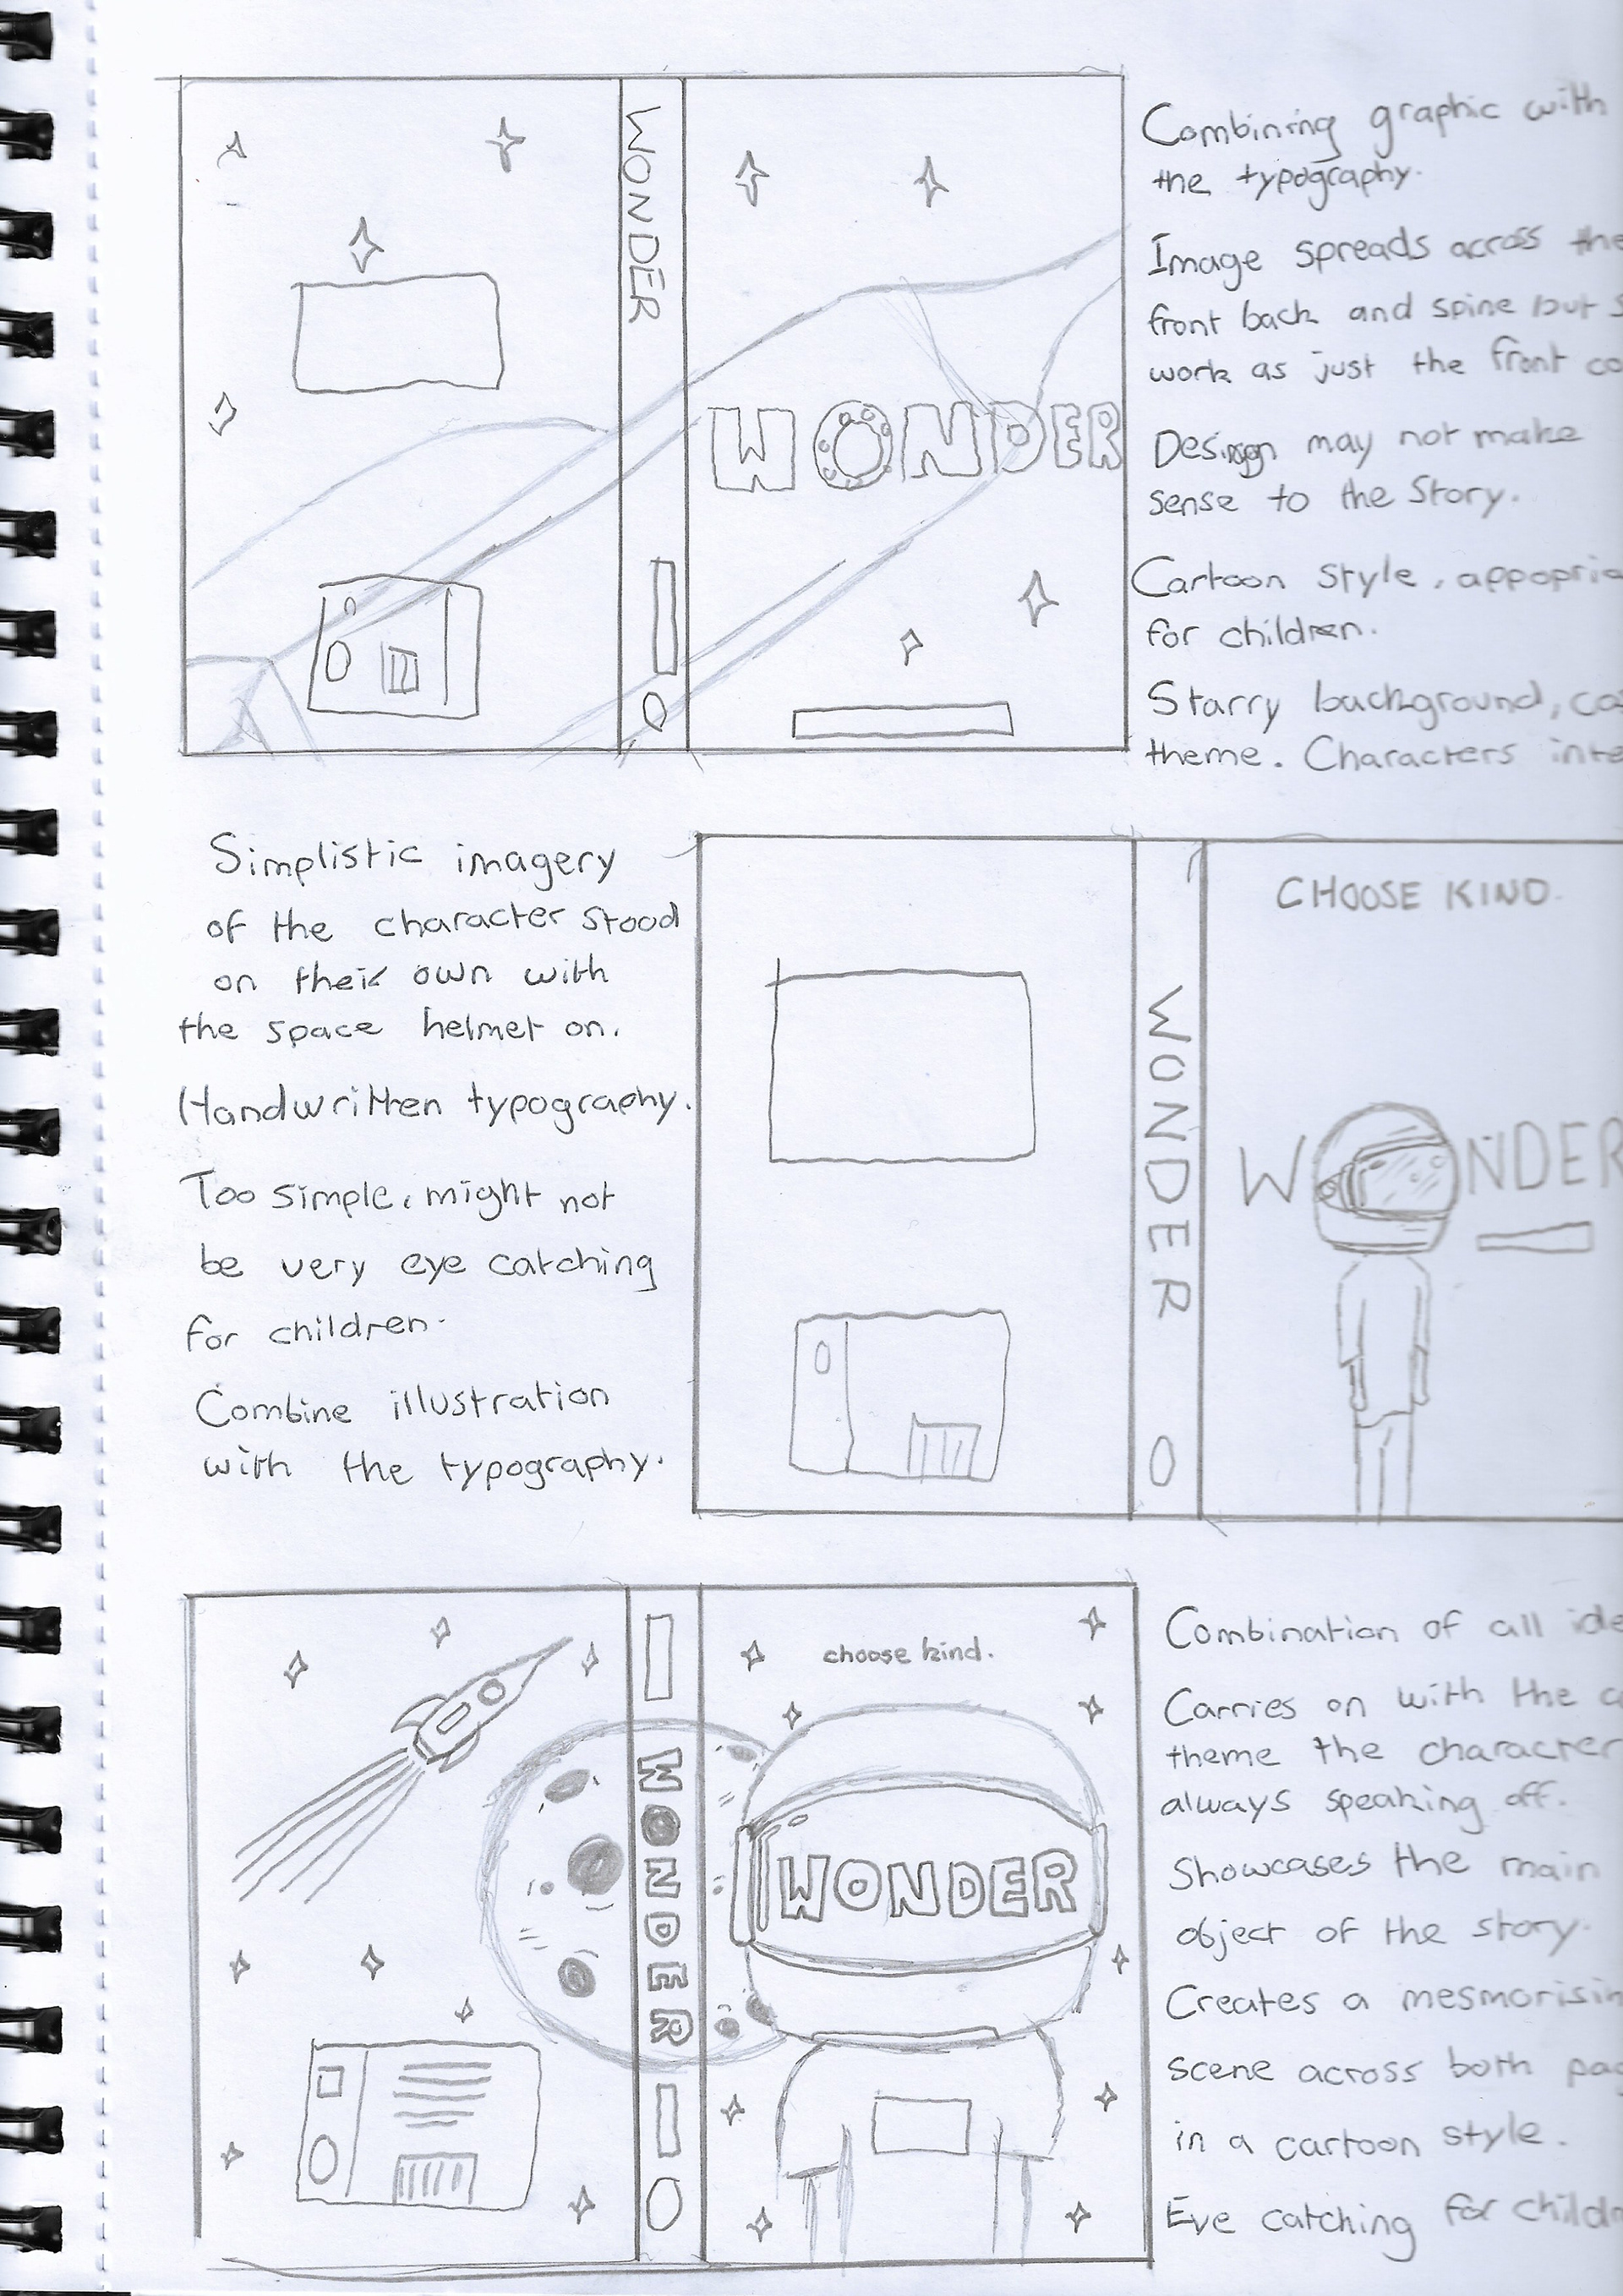 WONDER
WONDER
Combining graphic with
the typography.
Image spreads across the
front back and spine but
work as just the front
Design may not make
sense to the Story.
Cartoon Style, appopria
for children.
Starry background,
theme. Characters inte
Simplistic imagery
of the character stood
on their own with
the space helmet on.
Handwritten typography.
Too simple, might not
be very eye catching
for children.
Combine illustration
with the typography.
WONDER
CHOOSE KIND.
WONDER
WONDER
choose kind.
WONDER
Combination of all ide
Carries on with the
theme the character
always speaking off.
Showcases the main
object of the story.
Creates a mesmorisin
scene across both pa
in a cartoon style.
Eye catching for childr